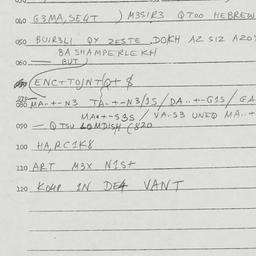 040 G3MA,SE4T ) M3SIR3 QTOO HEBREW
050 BUIR3LI QY ZESTE DOKH AZ SIZ AZO
BASHAMPERLEKH
060 — BUT )
(ENC++OJNT/Q+ $
080 MA-+-N3 TA-+-N3/1S/DA..+-G1S/ GA
MA++-S3S / VA-S3 UNEQ MA..+
090 — QTSU LOMDISH (820
100 HA,RC1K8
110 ART M3X N1S+
120 KO4P 1N DE4 VANT